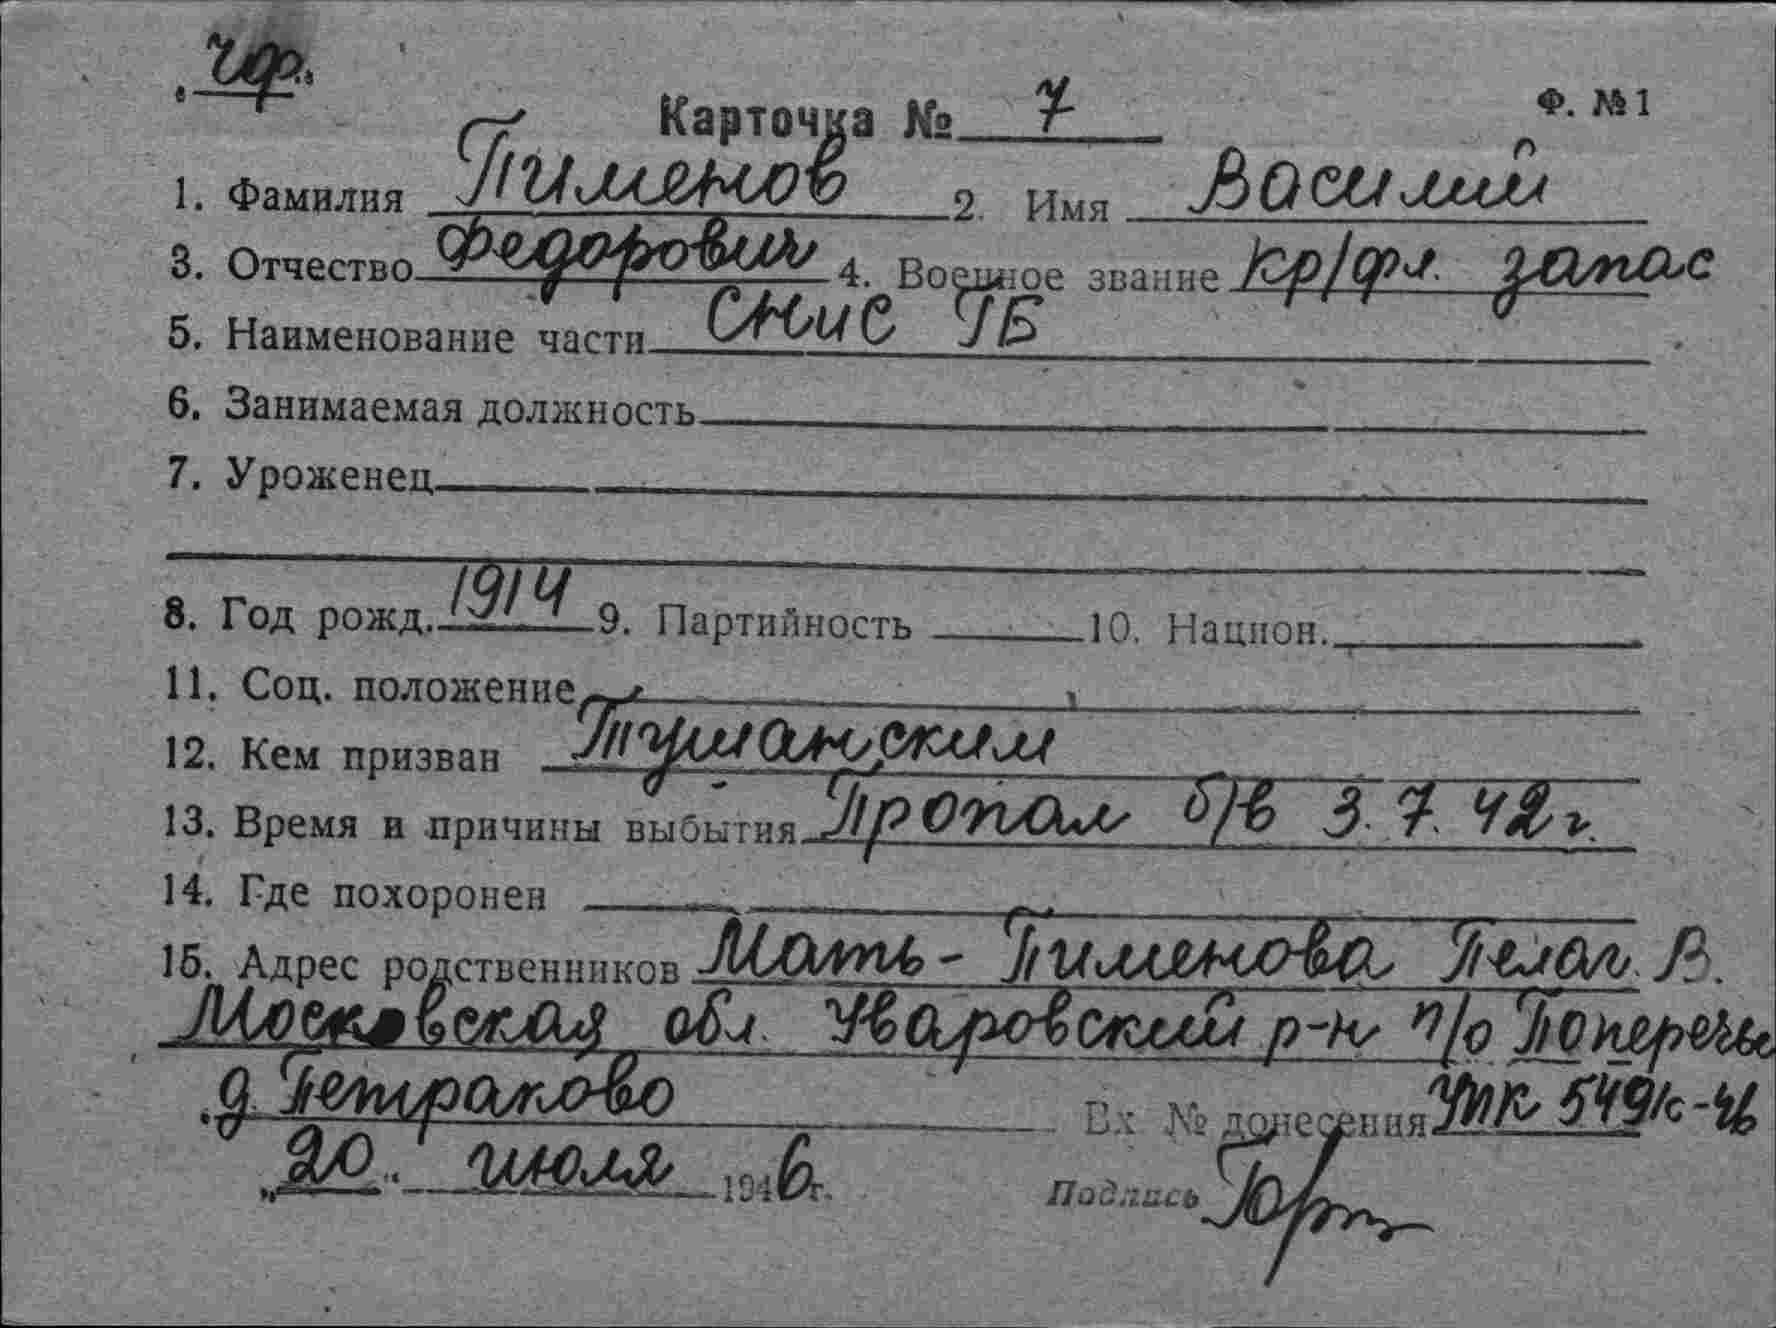 чф.
Карточка № 7 Ф. №1
1. Фамилия Пименов 2. Имя Василий
3. Отчество Федорович 4. Военное звание кр/фл. запас
5. Наименование части СНиС ГБ
6. Занимаемая должность
7. Уроженец
8. Год рожд. 1914 9. Партийность 10. Национ.
11. Соц. положение
12. Кем призван Тушанским
13. Время и причины выбытия Пропал б/в 3.7.42г.
14. Где похоронен
15. Адрес родственников Мать - Пименова Пелаг. В.
Московская обл. Уваровский р-н п/о Поперечье
д. Петраково Вх № донесения 549/с-46
„20“ июля 1946г. Подпись